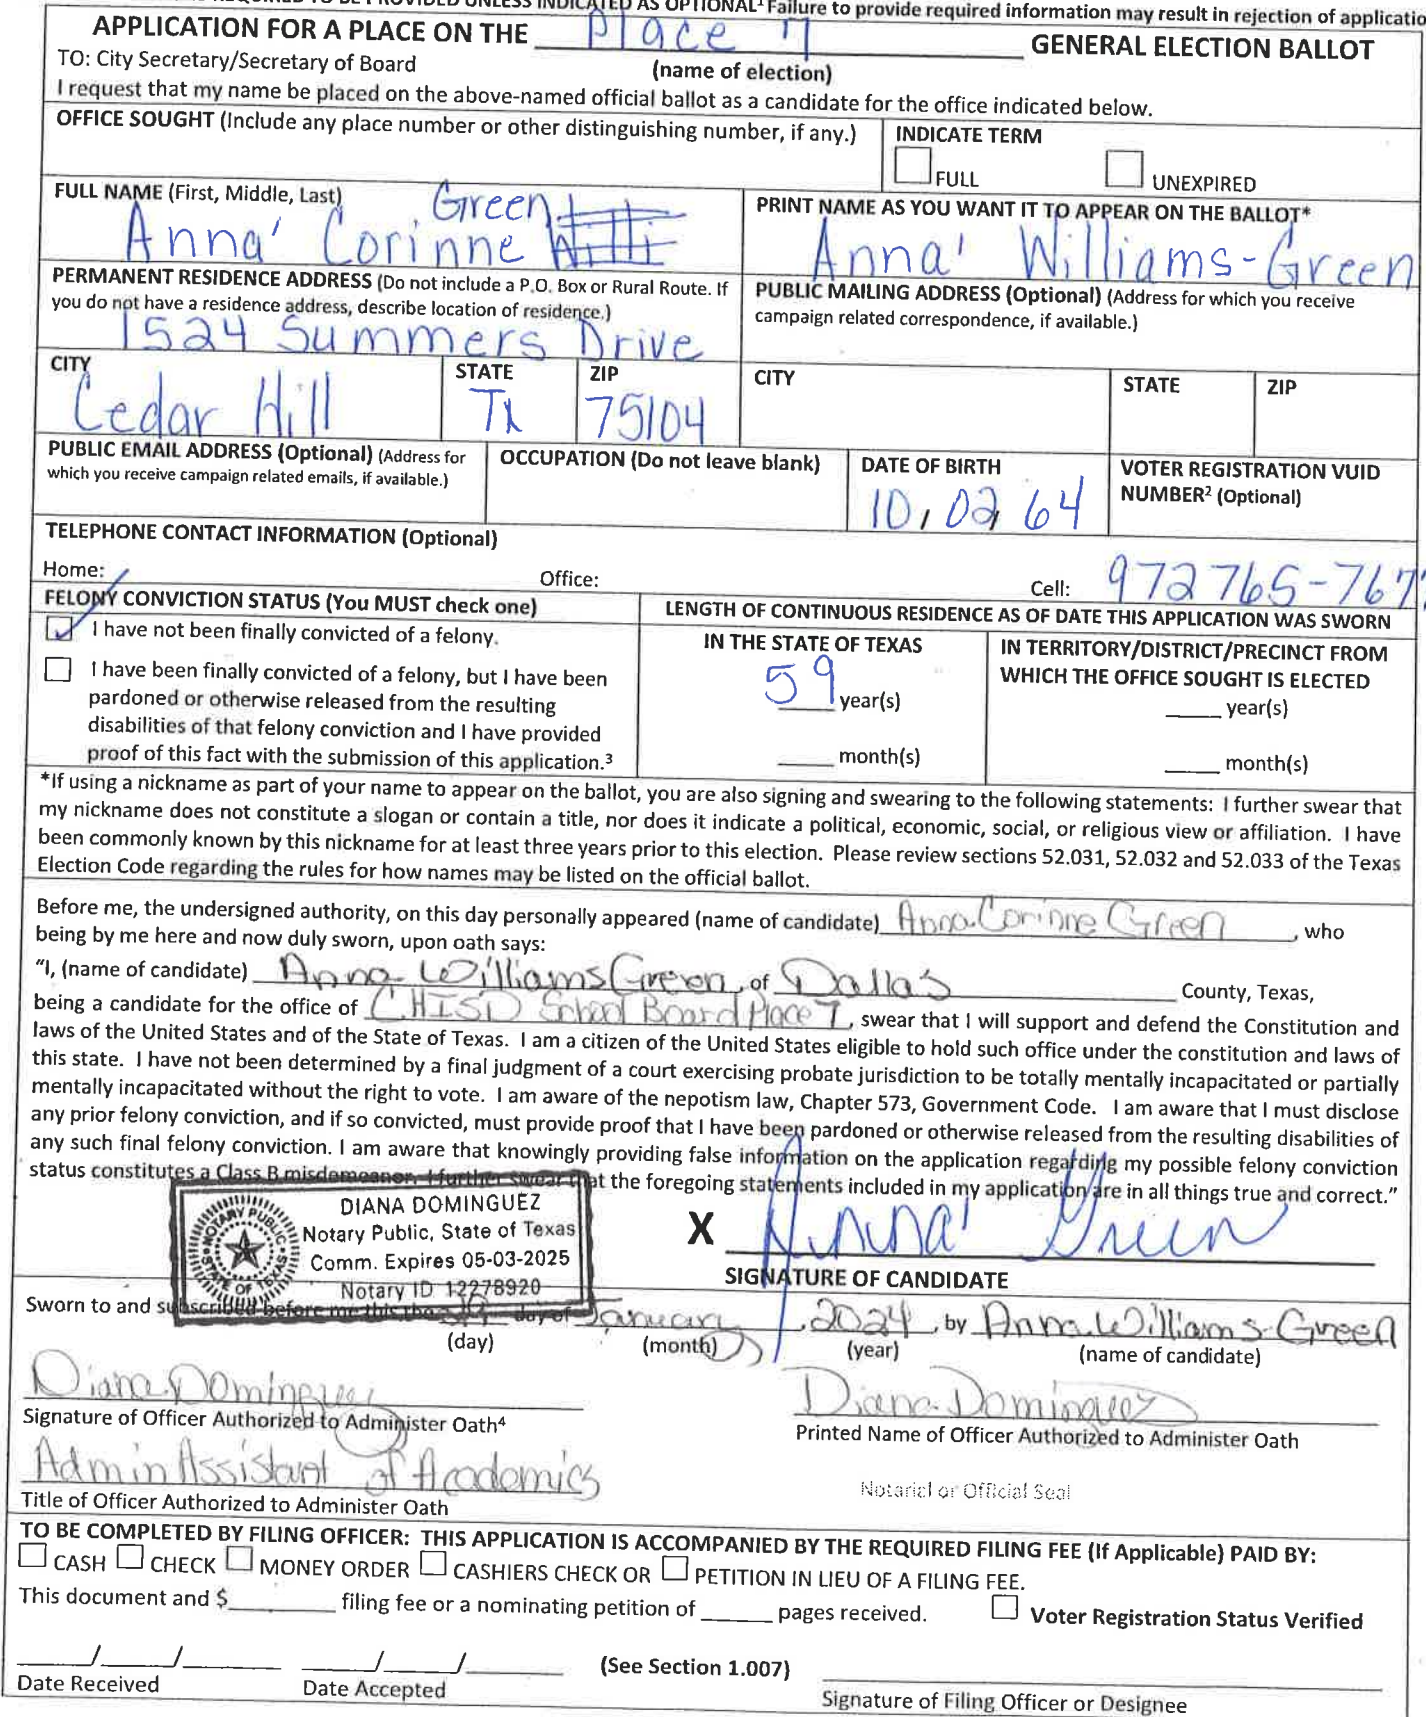 UNLESS INDICATED AS OPTIONAL¹ Failure to provide required information may result in rejection of applicatio
APPLICATION FOR A PLACE ON THE Place 7 GENERAL ELECTION BALLOT
TO: City Secretary/Secretary of Board (name of election)
I request that my name be placed on the above-named official ballot as a candidate for the office indicated below.
OFFICE SOUGHT (Include any place number or other distinguishing number, if any.)
INDICATE TERM
FULL UNEXPIRED
FULL NAME (First, Middle, Last)
Anna' Corinne Green
PRINT NAME AS YOU WANT IT TO APPEAR ON THE BALLOT*
Anna' Williams-Green
PERMANENT RESIDENCE ADDRESS (Do not include a P.O. Box or Rural Route. If
you do not have a residence address, describe location of residence.)
1524 Summers Drive
PUBLIC MAILING ADDRESS (Optional) (Address for which you receive
campaign related correspondence, if available.)
CITY STATE ZIP
Cedar Hill Tx 75104
CITY STATE ZIP
PUBLIC EMAIL ADDRESS (Optional) (Address for
which you receive campaign related emails, if available.)
OCCUPATION (Do not leave blank)
DATE OF BIRTH
10, 02, 64
VOTER REGISTRATION VUID
NUMBER² (Optional)
TELEPHONE CONTACT INFORMATION (Optional)
Home: Office: Cell: 972 765-767
FELONY CONVICTION STATUS (You MUST check one)
I have not been finally convicted of a felony.
I have been finally convicted of a felony, but I have been
pardoned or otherwise released from the resulting
disabilities of that felony conviction and I have provided
proof of this fact with the submission of this application.³
LENGTH OF CONTINUOUS RESIDENCE AS OF DATE THIS APPLICATION WAS SWORN
IN THE STATE OF TEXAS
59 year(s)
month(s)
IN TERRITORY/DISTRICT/PRECINCT FROM
WHICH THE OFFICE SOUGHT IS ELECTED
year(s)
month(s)
*If using a nickname as part of your name to appear on the ballot, you are also signing and swearing to the following statements: I further swear that
my nickname does not constitute a slogan or contain a title, nor does it indicate a political, economic, social, or religious view or affiliation. I have
been commonly known by this nickname for at least three years prior to this election. Please review sections 52.031, 52.032 and 52.033 of the Texas
Election Code regarding the rules for how names may be listed on the official ballot.
Before me, the undersigned authority, on this day personally appeared (name of candidate) Anna Corinne Green, who
being by me here and now duly sworn, upon oath says:
"I, (name of candidate) Anna Williams Green, of Dallas County, Texas,
being a candidate for the office of CHISD School Board Place 7, swear that I will support and defend the Constitution and
laws of the United States and of the State of Texas. I am a citizen of the United States eligible to hold such office under the constitution and laws of
this state. I have not been determined by a final judgment of a court exercising probate jurisdiction to be totally mentally incapacitated or partially
mentally incapacitated without the right to vote. I am aware of the nepotism law, Chapter 573, Government Code. I am aware that I must disclose
any prior felony conviction, and if so convicted, must provide proof that I have been pardoned or otherwise released from the resulting disabilities of
any such final felony conviction. I am aware that knowingly providing false information on the application regarding my possible felony conviction
status constitutes a Class B misdemeanor. I further swear that the foregoing statements included in my application are in all things true and correct."
DIANA DOMINGUEZ
Notary Public, State of Texas
Comm. Expires 05-03-2025
Notary ID 12278920
NOTARY PUBLIC
STATE OF TEXAS
X Anna' Green
SIGNATURE OF CANDIDATE
Sworn to and subscribed before me this the day of January, 2024, by Anna Williams-Green
(day) (month) (year) (name of candidate)
Diana Dominguez
Signature of Officer Authorized to Administer Oath⁴
Diana Dominguez
Printed Name of Officer Authorized to Administer Oath
Admin Assistant of Academics
Title of Officer Authorized to Administer Oath
Notarial or Official Seal
TO BE COMPLETED BY FILING OFFICER: THIS APPLICATION IS ACCOMPANIED BY THE REQUIRED FILING FEE (If Applicable) PAID BY:
CASH CHECK MONEY ORDER CASHIERS CHECK OR PETITION IN LIEU OF A FILING FEE.
This document and $ filing fee or a nominating petition of pages received. Voter Registration Status Verified
/ / / / (See Section 1.007)
Date Received Date Accepted Signature of Filing Officer or Designee